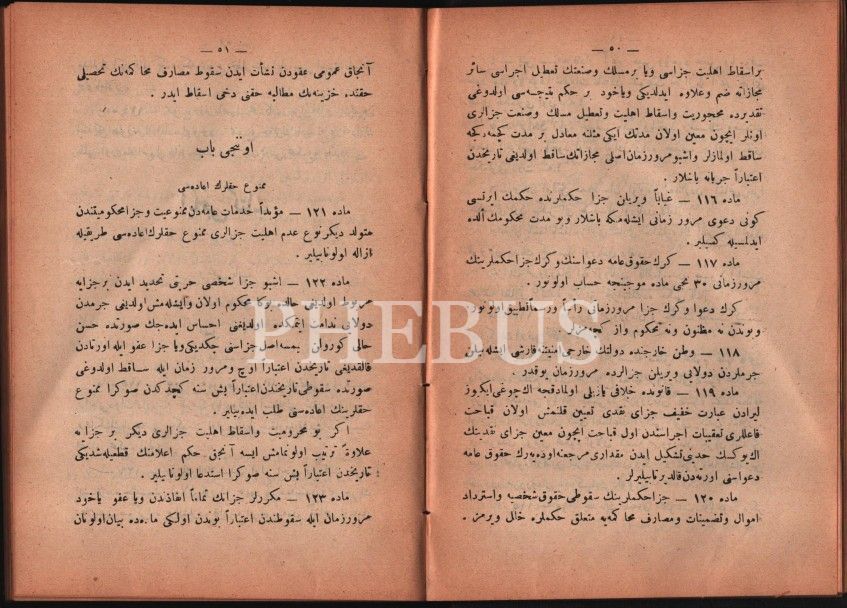 — ٥٠ —
بر اسقاط اهلیت جزاسی ویا بر مسلك وصنعتك تعطیل اجراسی سائر
مجازاته ضم وعلاوه ایدلدیكی ویاخود بر حكم نتیجه‌سی اولدوغی
تقدیرده محجوریت واسقاط اهلیت وتعطیل مسلك وصنعت جزالری
اونلر ایچون معین اولان مدتك ایكی مثلنه معادل بر مدت كچمه‌دكجه
ساقط اولمازلر واشبو مرور زمان اصلی مجازاتك ساقط اولدیغی تاریخدن
اعتباراً جریانه باشلار .
ماده ١١٦ — غیاباً ویریلن جزا حكملرنده حكمك ایرتسی
كونی دعوی مرور زمانی ایشله‌مكه باشلار وبو مدت محكومك الده
ایدلمسیله كسیلیر .
ماده ١١٧ — كرك حقوق عامه دعواسنك وكرك جزا حكملرینك
مرور زمانی ٣٠ نجی ماده موجبنجه حساب اولونور .
كرك دعوا وكرك جزا مرور زمانی رأساً ورسماً تطبیق اولونور
وبوندن نه مظنون ونه محكوم واز كچه‌مزلر .
١١٨ — وطن خارجنده دولتك خارجی امنیتنه قارشی ایشله‌نیلن
جرملردن دولایی ویریلن جزالرده مرور زمان یوقدر .
ماده ١١٩ — قانونده خلافی یازیلی اولمادقجه اك چوغی ایكیوز
لیرادن عبارت خفیف جزای نقدی تعیین قلنمش اولان قباحت
فاعللری تعقیبات اجراسندن اول قباحت ایچون معین جزای نقدینك
اك یوكسك حدینی تشكیل ایدن مقداری مرجعنه اوده‌یه‌رك حقوق عامه
دعواسنی اورته‌دن قالدیرتابیلیرلر .
ماده ١٢٠ — جزا حكملرینك سقوطی حقوق شخصیه واسترداد
اموال وتضمینات ومصارف محاكمه‌یه متعلق حكملره خلل ویرمز .
— ٥١ —
آنجاق عمومی عفودن نشأت ایدن سقوط مصارف محاكمه‌نك تحصیلی
حقنده خزینه‌نك مطالبه حقنی دخی اسقاط ایدر .
اونجی باب
ممنوع حقلرك اعاده‌سی
ماده ١٢١ — مؤبداً خدمات عامه‌دن ممنوعیت وجزا محكومیتندن
متولد دیكر نوع عدم اهلیت جزالری ممنوع حقلرك اعاده‌سی طریقیله
ازاله اولونابیلیر .
ماده ١٢٢ — اشبو جزا شخصی حریتی تحدید ایدن بر جزایه
مربوط اولدیغی حالده بوكا محكوم اولان وایشله‌مش اولدیغی جرمدن
دولایی ندامت ایتمكده اولدیغنی احساس ایده‌جك صورتده حسن
حالی كورولن كیمسه اصل جزاسنی چكدیكی ویا جزا عفو ایله اورتادن
قالقدیغی تاریخدن اعتباراً اوچ ومرور زمان ایله ساقط اولدوغی
صورتده سقوطی تاریخندن اعتباراً بش سنه كچدكدن صوكرا ممنوع
حقلرینك اعاده‌سنی طلب ایده‌بیلیر .
اكر بو محرومیت واسقاط اهلیت جزالری دیكر بر جزایه
علاوةً ترتیب اولونمامش ایسه آنجق حكم اعلامنك قطعیله‌شدیكی
تاریخدن اعتباراً بش سنه صوكرا استدعا اولونابیلیر .
ماده ١٢٣ — مكررلر جزانك تماماً انفاذندن ویا عفو یاخود
مرور زمان ایله سقوطندن اعتباراً بوندن اولكی ماده‌ده بیان اولونان
PHEBUS